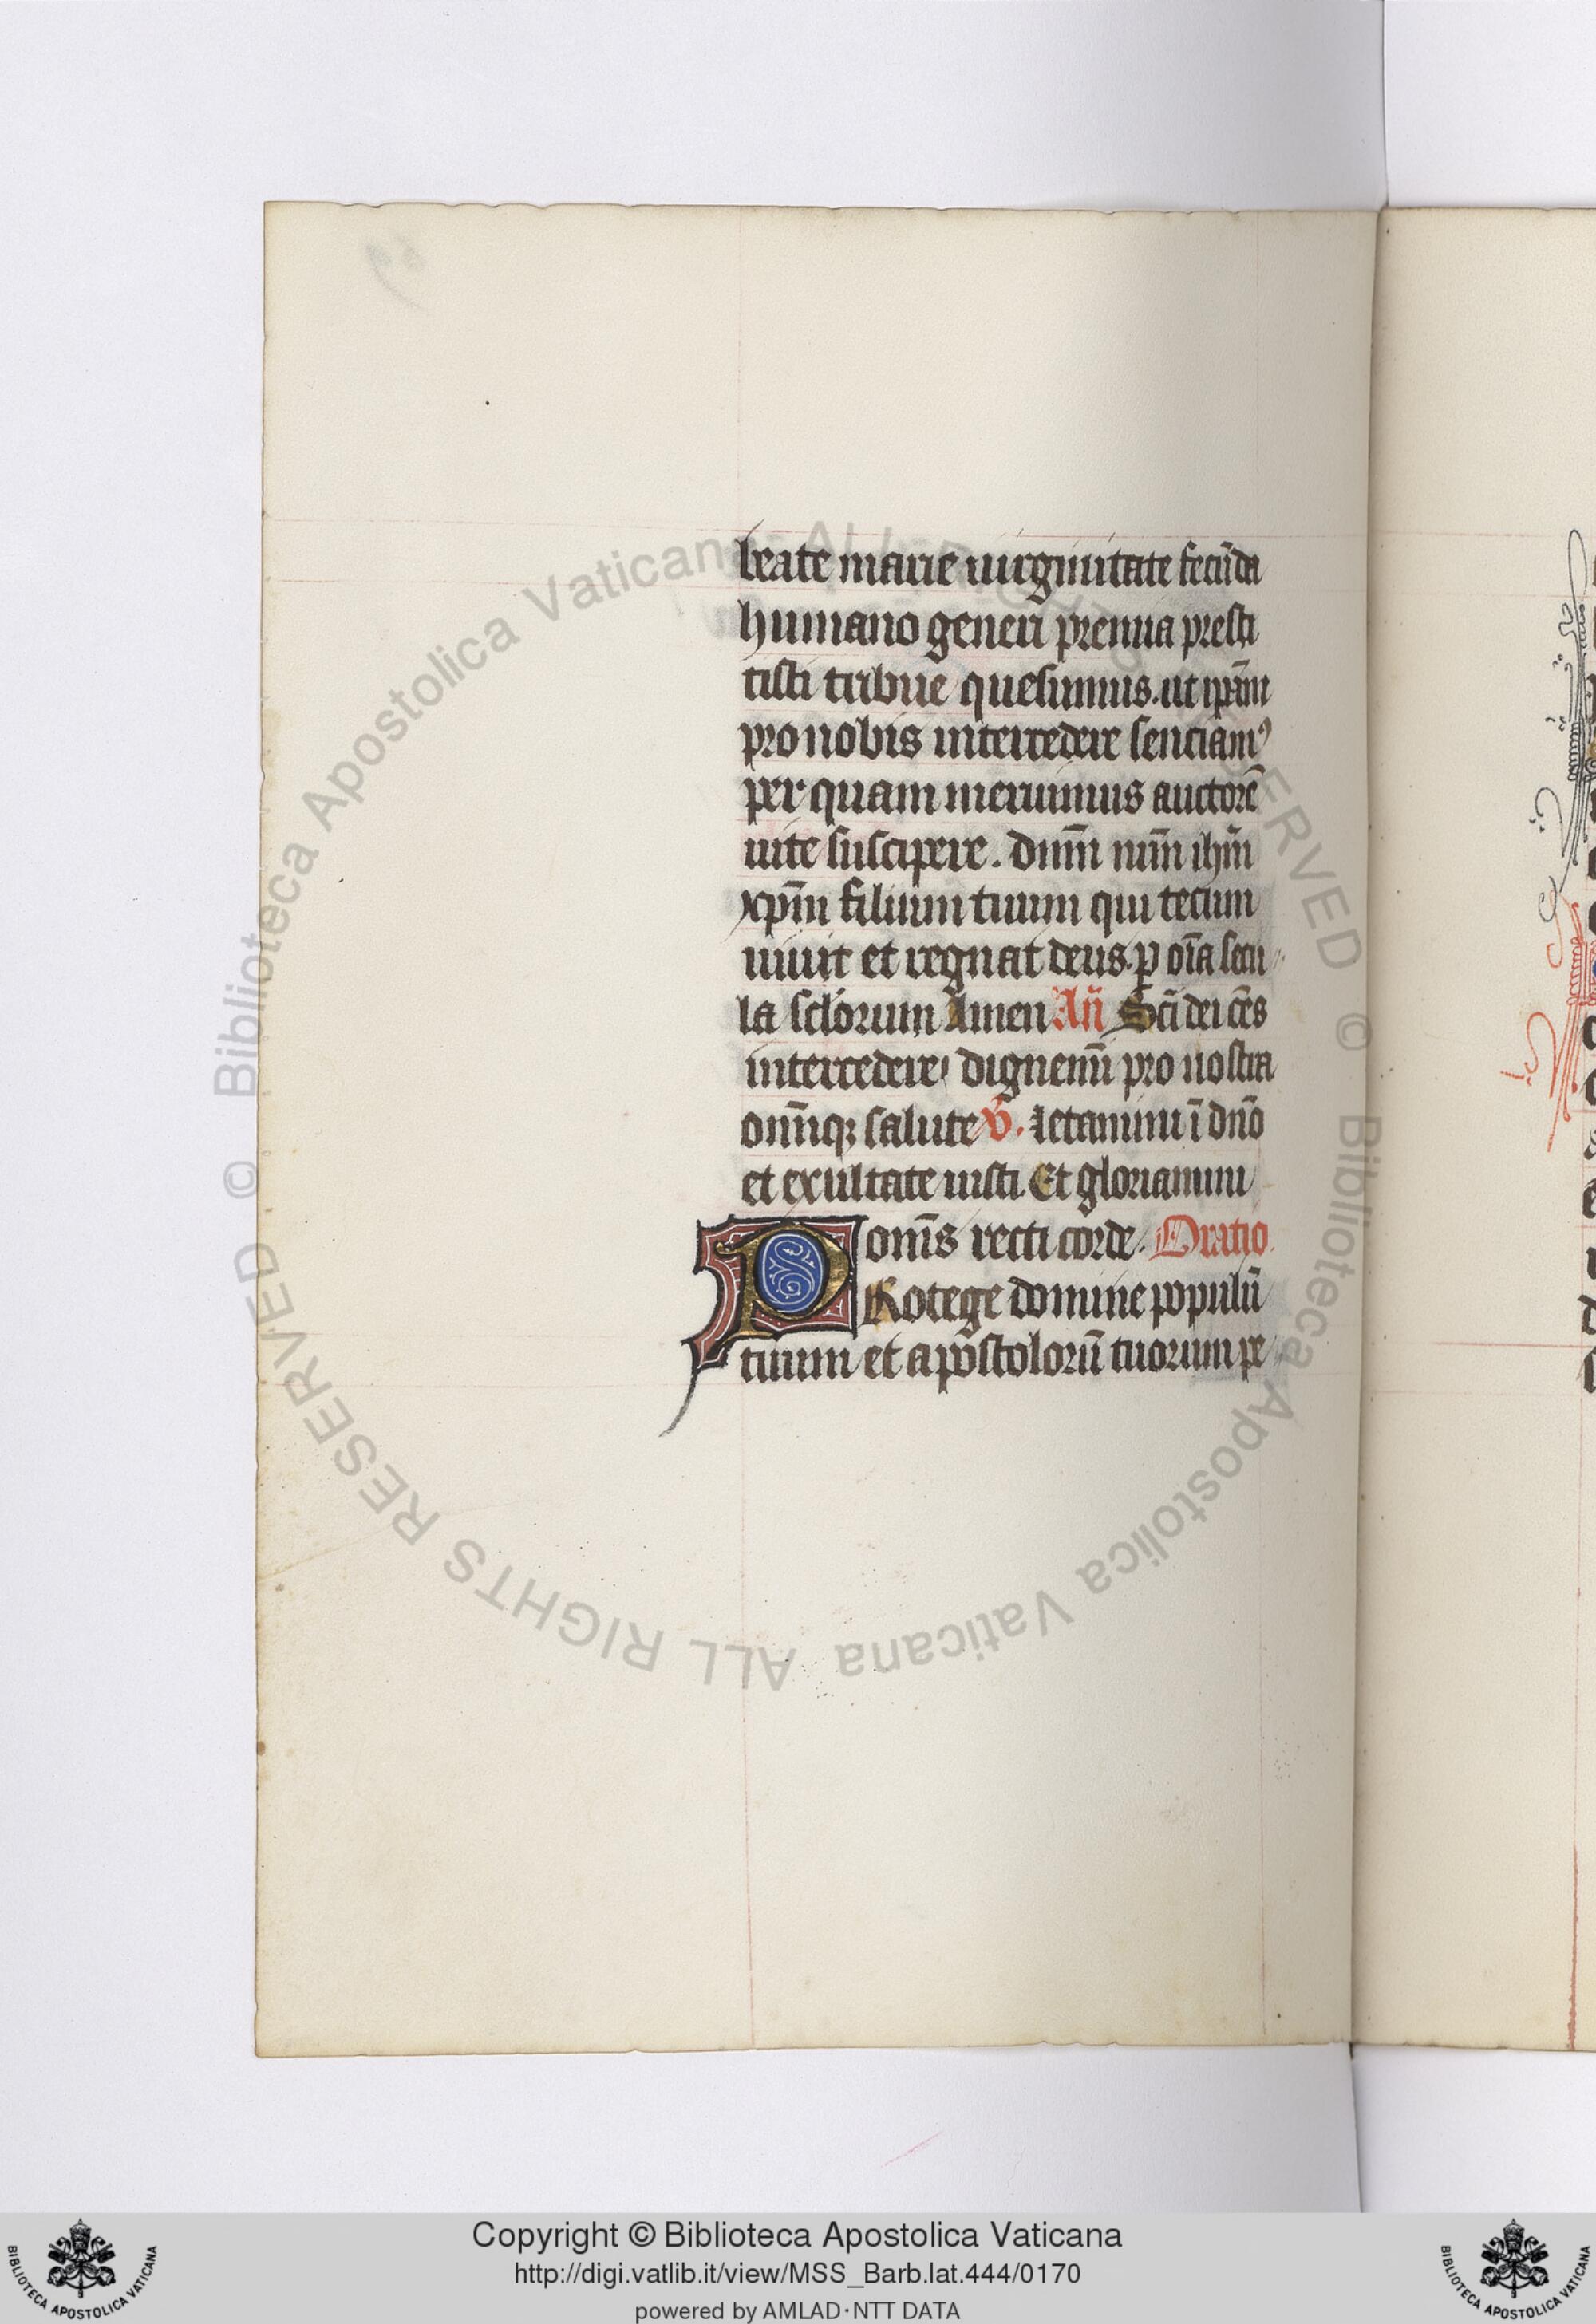 beate marie uirginitate fecūda
humano generi premia presti
tisti tribue quesumus. ut ip̄am
pro nobis intercedere senciamꝰ
per quam meruimus auctorē
uite suscipere. dn̄m nr̄m ihm̄
xp̄m filium tuum qui tecum
uiuit et regnat deus. p oīa secu
la sclorum Amen An̄ Sc̄i dei oēs
intercedere dignemī pro nostra
omīqꝫ salute V̄. letamini ī dn̄o
et exultate iusti. Et gloriamini
omēs recti corde. Oratio.
PRotege domine populū
tuum et apostolorū tuorum pe
© Biblioteca Apostolica Vaticana ALL RIGHTS RESERVED © Biblioteca Apostolica Vaticana ALL RIGHTS RESERVED
Copyright © Biblioteca Apostolica Vaticana
http://digi.vatlib.it/view/MSS_Barb.lat.444/0170
powered by AMLAD·NTT DATA
BIBLIOTECA APOSTOLICA VATICANA
BIBLIOTECA APOSTOLICA VATICANA